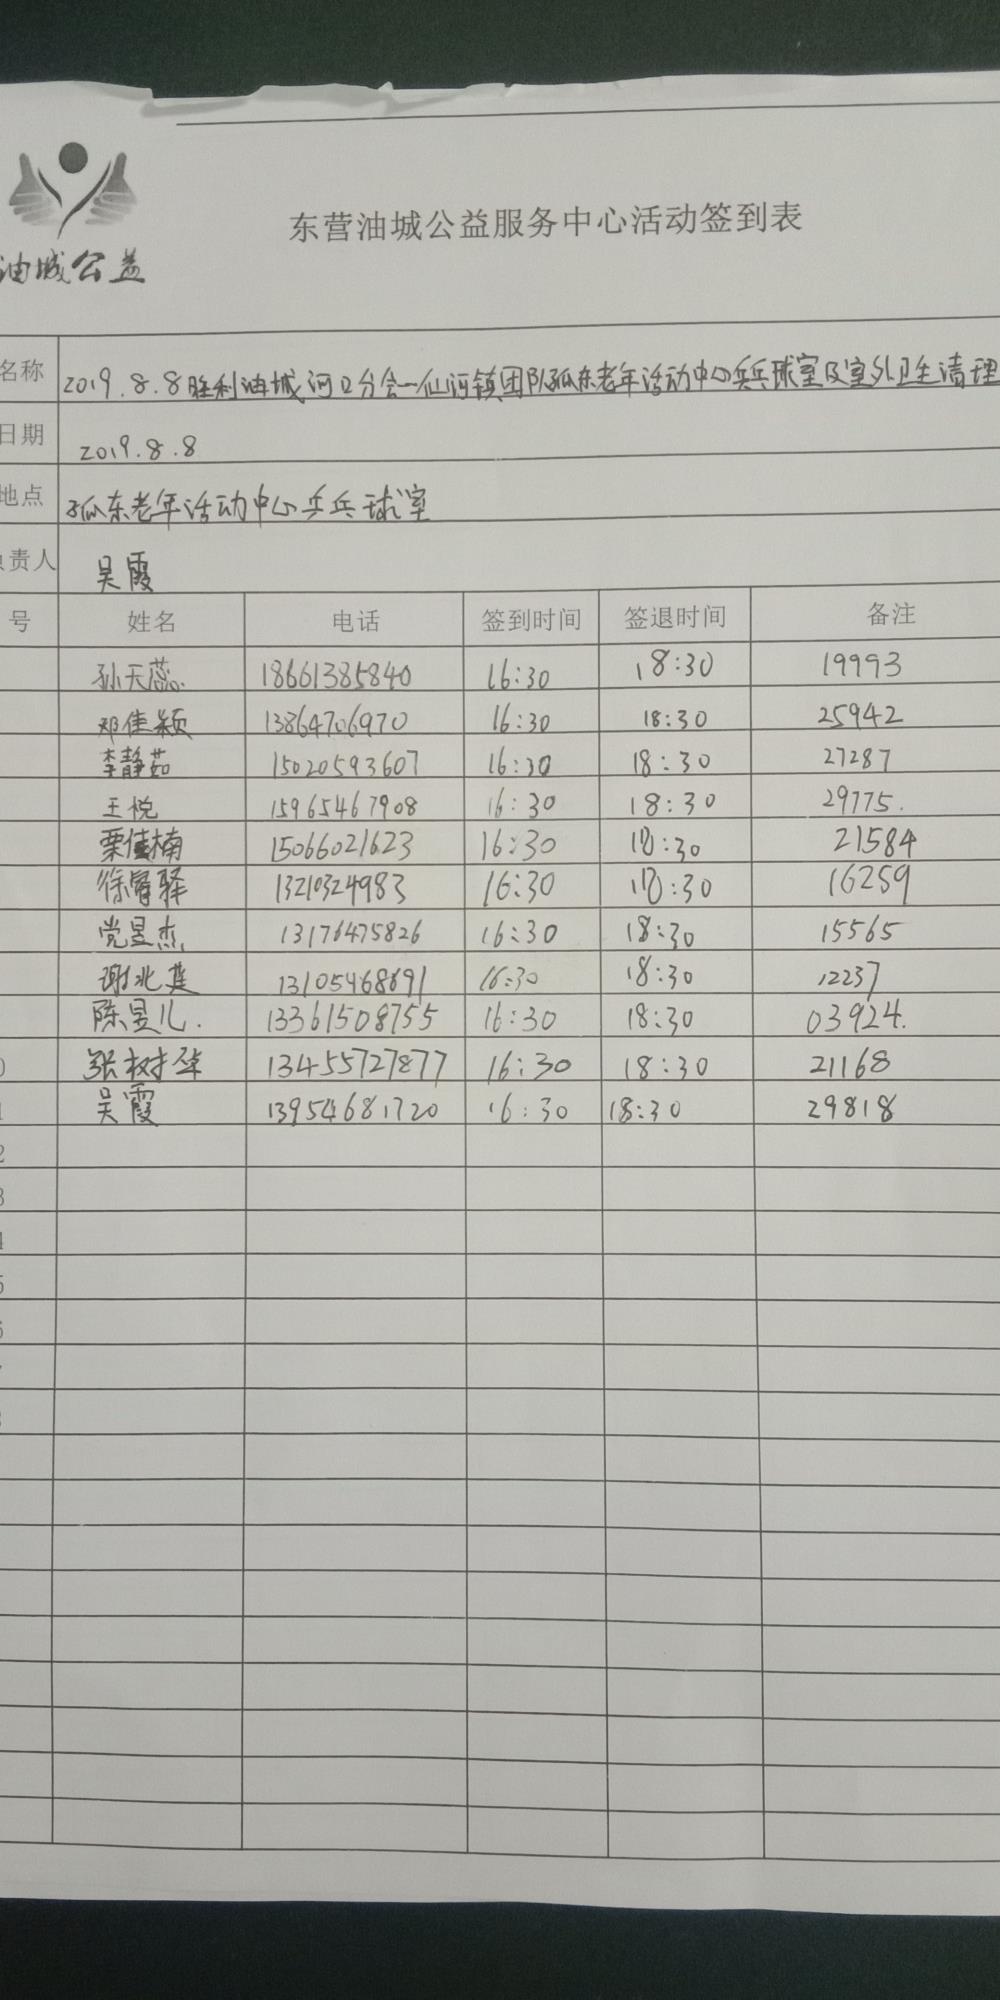 油城公益
东营油城公益服务中心活动签到表
名称 2019.8.8胜利油城河口分会一仙河镇团队孤东老年活动中心乒乓球室及室外卫生清理
日期 2019.8.8
地点 孤东老年活动中心乒乓球室
负责人 吴霞
号 姓名 电话 签到时间 签退时间 备注
孙天蕊 18661385840 16:30 18:30 19993
邓佳颖 13864706970 16:30 18:30 25942
李静茹 15020593607 16:30 18:30 27287
王悦 15965467908 16:30 18:30 29775.
栗佳楠 15066021623 16:30 18:30 21584
徐睿驿 13210324983 16:30 18:30 16259
党昱杰 13176475826 16:30 18:30 15565
谢兆 13105468691 16:30 18:30 12237
陈昱儿. 13361508755 16:30 18:30 03924.
0 张树华 13455727877 16:30 18:30 21168
1 吴霞 13954681720 16:30 18:30 29818
2
3
4
5
6